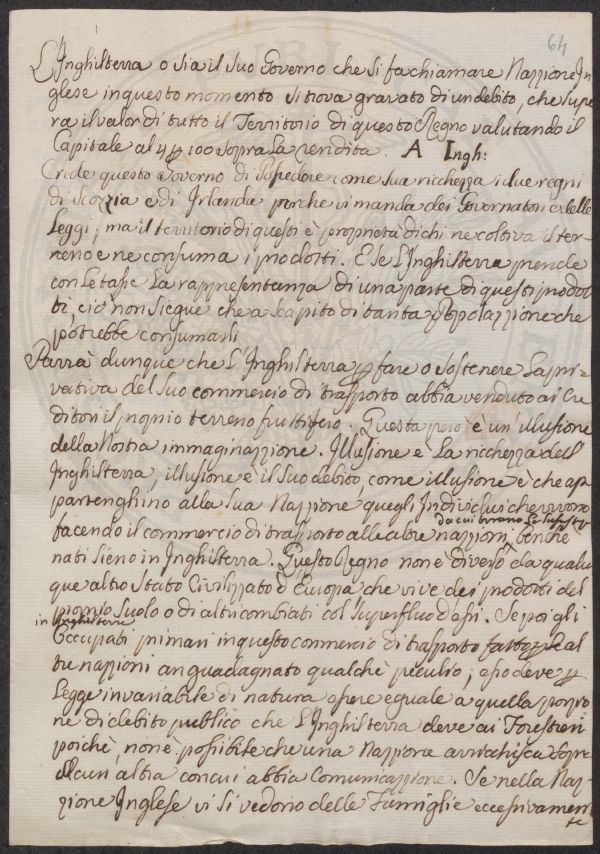 64
L'Inghilterra o sia il suo Governo che si fa chiamare Nazzione In
glese in questo momento si trova gravato di un debito, che supe
ra il valor di tutto il Territorio di questo Regno valutando il
Capitale al 4 p 100 sopra la rendita. A Ingh:
Crede questo Governo di possedere come sua ricchezza i due regni
di Scozzia e di Irlanda porche vi manda dei Governatori e delle
Leggi, ma il territorio di questi è proprietà di chi ne coltiva il ter
reno e ne consuma i prodotti. E se L'Inghilterra prende
con le tasse La rappresentanza di una parte di questi prodot
ti, ciò non siegue che a scapito di tanta Popolazzione che
potrebbe consumarli
Parrà dunque che L'Inghilterra p fare o sostenere La pri-
vativa del suo commercio di trasporto abbia venduto ai Cre
ditori il proprio terreno fruttifero. Questa però è un'illusione
della nostra immaginazzione. Illusione è La ricchezza dell'
Inghilterra, illusione è il suo debito, come illusione è che ap
partenghino alla sua Nazzione quegli Individui che vivono
facendo il commercio di trasporto alle altre nazzioni, benchè
da cui tirano
nati sieno in Inghilterra. Questo Regno non è diverso da qualun
que altro stato Civilizzato d'Europa che vive dei prodotti del
proprio suolo o di altri cambiati col superfluo d'essi. Se poi gli
in Inghilterra
Occupati primari in questo commercio di trasporto al
tre nazzioni an guadagnato qualche peculio, esso deve p
Legge invariabile di natura essere eguale a quella porzio
ne di debito publico che L'Inghilterra deve ai Forestieri
poichè non è possibile che una Nazzione arricchisca sopra
alcun'altra con cui abbia Comunicazzione. Se nella Naz-
zione Inglese vi si vedono delle Famiglie eccessivamen
te